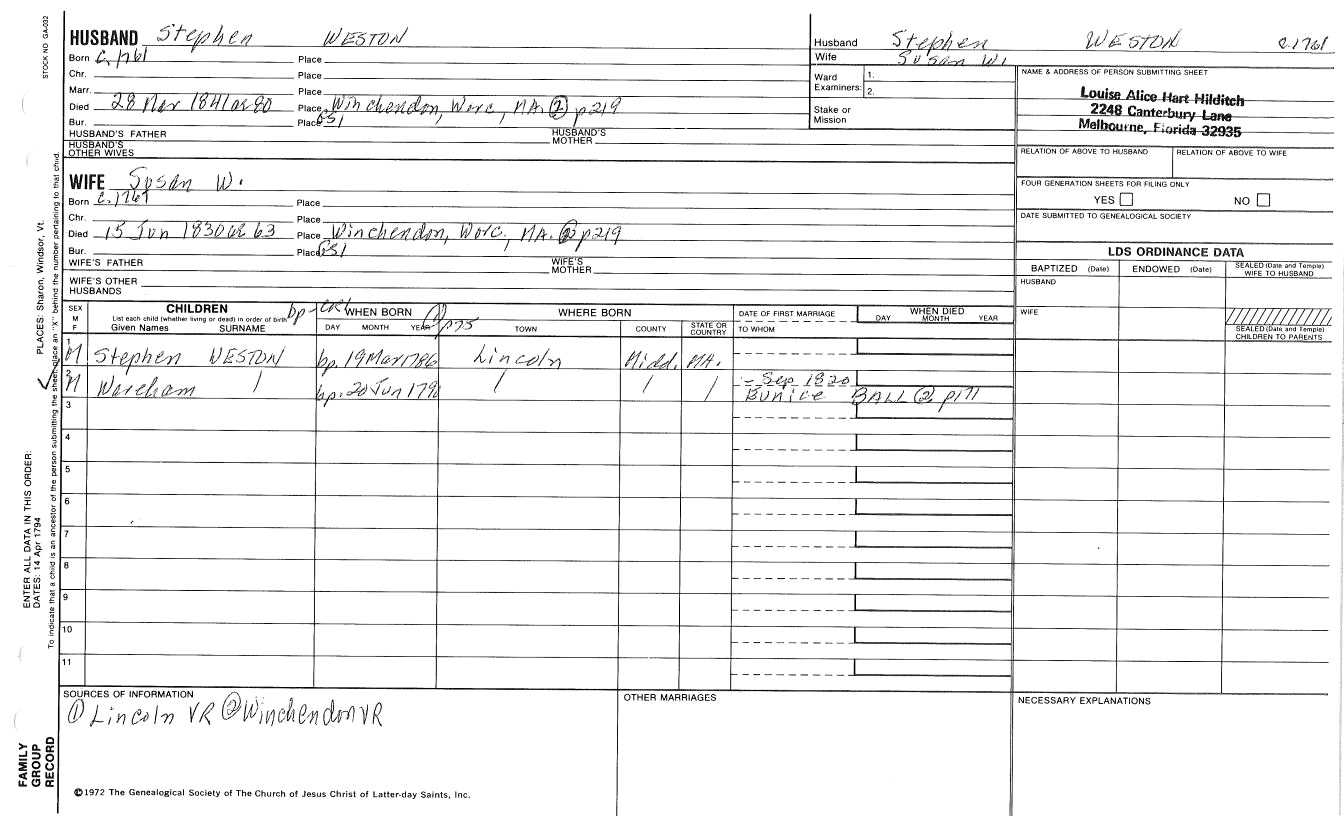 STOCK NO GA-032
HUSBAND Stephen WESTON
Born c.1761 Place
Chr. Place
Marr. Place
Died 28 Mar 1841 ae 80 Place Winchendon, Worc, MA. ② p219
Bur. Place GS1
HUSBAND'S FATHER HUSBAND'S MOTHER
HUSBAND'S OTHER WIVES
WIFE Susan W.
Born c.1767 Place
Chr. Place
Died 15 Jun 1830 ae 63 Place Winchendon, Worc., MA. ② p219
Bur. Place GS1
WIFE'S FATHER WIFE'S MOTHER
WIFE'S OTHER HUSBANDS
Husband Stephen WESTON c.1761
Wife Susan W.
Ward Examiners: 1. 2.
Stake or Mission
NAME & ADDRESS OF PERSON SUBMITTING SHEET
Louise Alice Hart Hilditch
2248 Canterbury Lane
Melbourne, Florida 32935
RELATION OF ABOVE TO HUSBAND RELATION OF ABOVE TO WIFE
FOUR GENERATION SHEETS FOR FILING ONLY
YES NO
DATE SUBMITTED TO GENEALOGICAL SOCIETY
LDS ORDINANCE DATA
BAPTIZED (Date) ENDOWED (Date) SEALED (Date and Temple) WIFE TO HUSBAND
HUSBAND
WIFE
SEALED (Date and Temple) CHILDREN TO PARENTS
SEX M F CHILDREN bp-CR1 WHEN BORN ① p75 WHERE BORN DATE OF FIRST MARRIAGE WHEN DIED
List each child (whether living or dead) in order of birth
Given Names SURNAME DAY MONTH YEAR TOWN COUNTY STATE OR COUNTRY TO WHOM DAY MONTH YEAR
1 M Stephen WESTON bp. 19 Mar 1786 Lincoln Midd. MA.
2 M Wareham / bp. 20 Jun 1790 / / / - Sep 1820
Eunice BALL ② p171
3
4
5
6
7
8
9
10
11
SOURCES OF INFORMATION OTHER MARRIAGES NECESSARY EXPLANATIONS
① Lincoln VR ② Winchendon VR
©1972 The Genealogical Society of The Church of Jesus Christ of Latter-day Saints, Inc.
ENTER ALL DATA IN THIS ORDER:
DATES: 14 Apr 1794 PLACES: Sharon, Windsor, Vt.
To indicate that a child is an ancestor of the person submitting the sheet, place an "X" behind the number pertaining to that child.
FAMILY
GROUP
RECORD